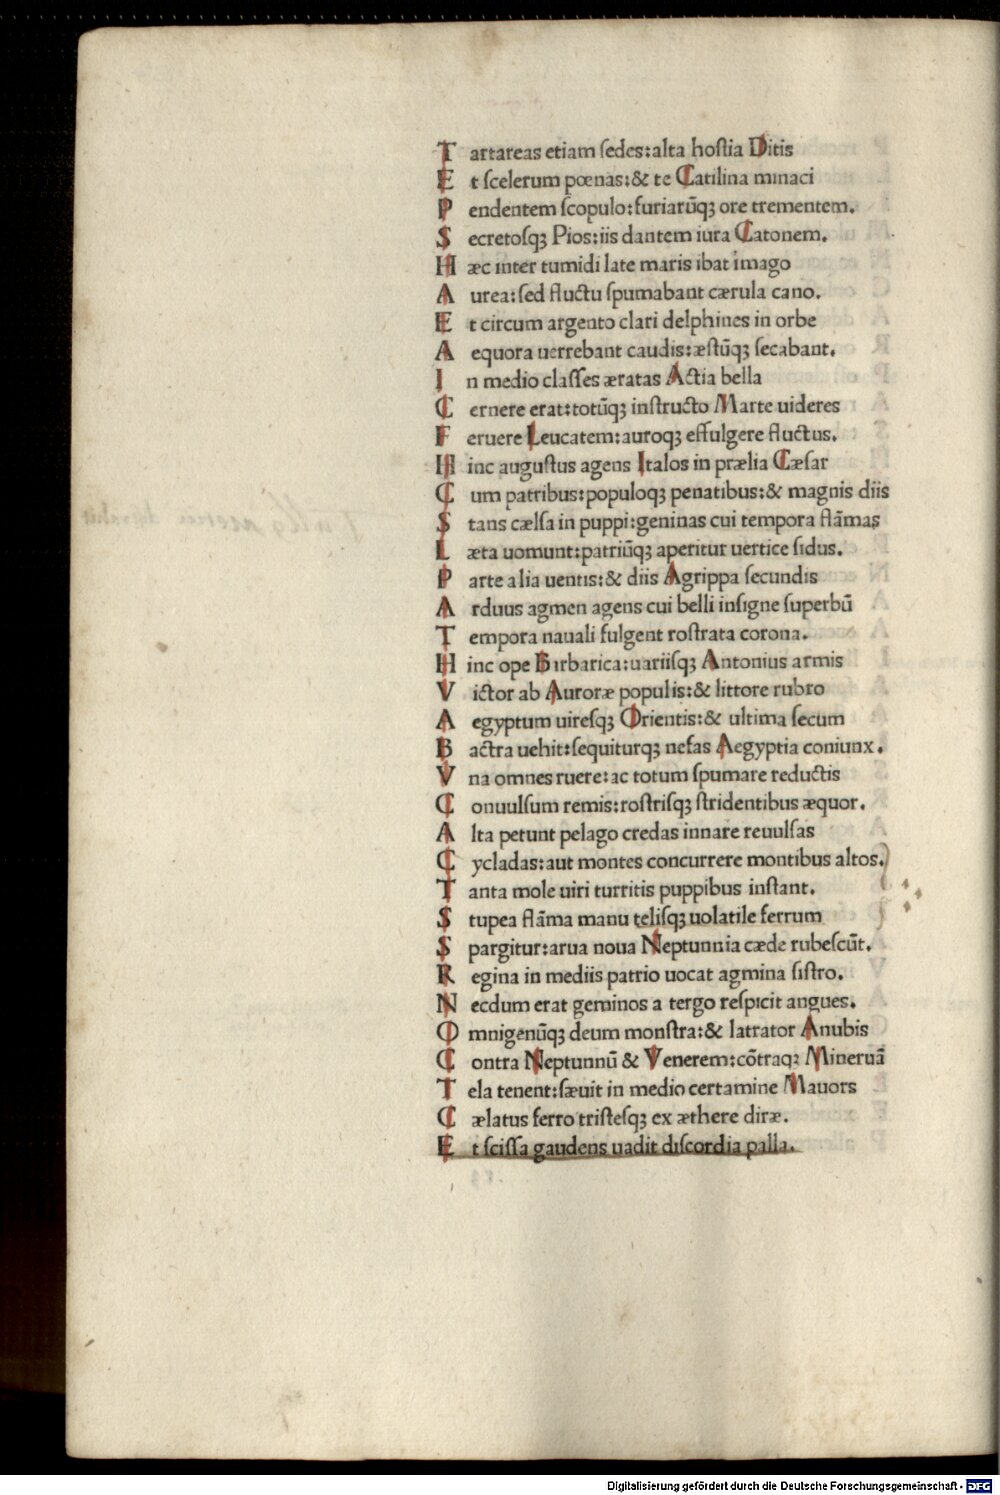 Tartareas etiam ſedes:alta hoſtia Ditis
Et ſcelerum pœnas:& te Catilina minaci
Pendentem ſcopulo:furiarūqꝫ ore trementem.
Secretoſqꝫ Pios:iis dantem iura Catonem.
Hæc inter tumidi late maris ibat imago
Aurea:ſed fluctu ſpumabant cærula cano.
Et circum argento clari delphines in orbe
Aequora uerrebant caudis:æſtūqꝫ ſecabant.
In medio claſſes æratas Actia bella
Cernere erat:totūqꝫ inſtructo Marte uideres
Feruere Leucatem:auroqꝫ effulgere fluctus.
Hinc auguſtus agens Italos in prælia Cæſar
Cum patribus:populoqꝫ penatibus:& magnis diis
Stans cælſa in puppi:geminas cui tempora flāmas
Læta uomunt:patriūqꝫ aperitur uertice ſidus.
Parte alia uentis:& diis Agrippa ſecundis
Arduus agmen agens cui belli inſigne ſuperbū
Tempora nauali fulgent roſtrata corona.
Hinc ope Barbarica:uariiſqꝫ Antonius armis
Victor ab Auroræ populis:& littore rubro
Aegyptum uireſqꝫ Orientis:& ultima ſecum
Bactra uehit:ſequiturqꝫ nefas Aegyptia coniunx.
Vna omnes ruere:ac totum ſpumare reductis
Conuulſum remis:roſtriſqꝫ ſtridentibus æquor.
Alta petunt pelago credas innare reuulſas
Cycladas:aut montes concurrere montibus altos.
Tanta mole uiri turritis puppibus inſtant.
Stupea flāma manu teliſqꝫ uolatile ferrum
Spargitur:arua noua Neptunnia cæde rubeſcūt.
Regina in mediis patrio uocat agmina ſiſtro.
Necdum erat geminos a tergo reſpicit angues.
Omnigenūqꝫ deum monſtra:& latrator Anubis
Contra Neptunnū & Venerem:cōtraqꝫ Mineruā
Tela tenent:ſæuit in medio certamine Mauors
Cælatus ferro triſteſqꝫ ex æthere diræ.
Et ſciſſa gaudens uadit diſcordia palla.
Digitalisierung gefördert durch die Deutsche Forschungsgemeinschaft - DFG